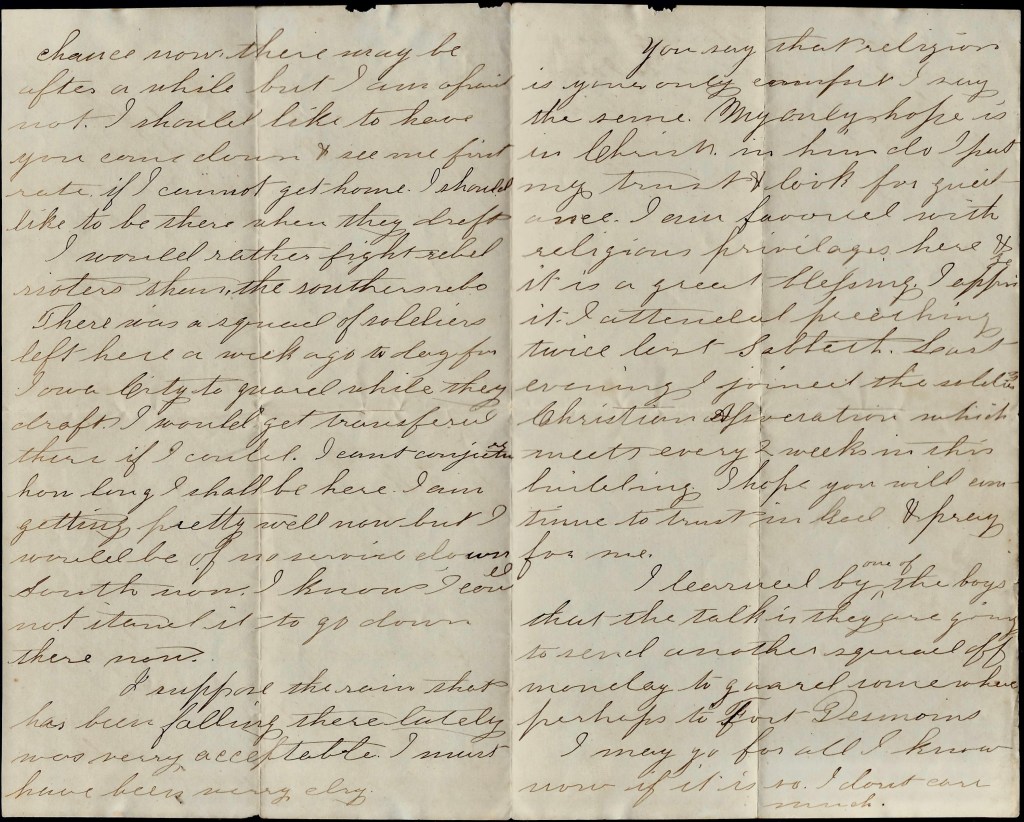 chance now, there may be
after a while but I am afraid
not. I should like to have
you come down & see me first
rate if I cannot get home. I should
like to be there when they draft
I would rather fight rebel
rioters than, the southern rebs
There was a squad of soldiers
left here a week ago to day for
Iowa City to guard while they
draft. I would get transfered
there if I could. I cant conjecture
how long I shall be here. I am
getting pretty well now but I
would be of no service down
South now. I know I could
not stand it to go down
there now.
I suppose the rain that
has been falling there lately
was verry acceptable. I must
have been verry dry.
You say that religion
is your only comfort I say
the same. My only hope is
in Christ. in him do I put
my trust & look for guid-
ance. I am favored with
religious privilages here &
it is a great blessing. I
it. I attended preaching
twice last Sabbath. Last
evening I joined the soldiers
Christian Association which
meets every 2 weeks in this
building. I hope you will con-
tinue to trust in God & pray
for me.
I learned by one of the boys
that the talk is they are going
to send another squad off
monday to guard somewhere
perhaps to Fort Desmoins
I may go for all I know
now if it is so. I dont care
much.